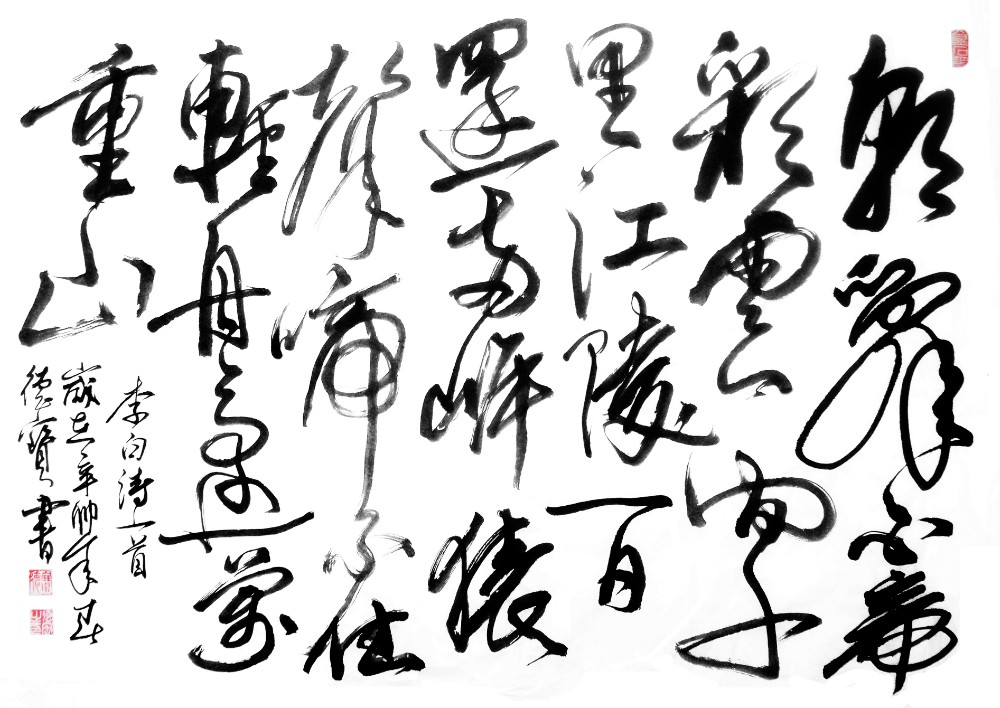 朝辭白帝
彩雲間千
里江陵一日
還兩岸猿
聲啼不住
輕舟已過萬
重山
李白詩一首
歲在辛卯年春
德寶書